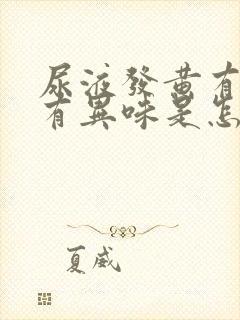 尿液發黃有
有異味是怎
夏威